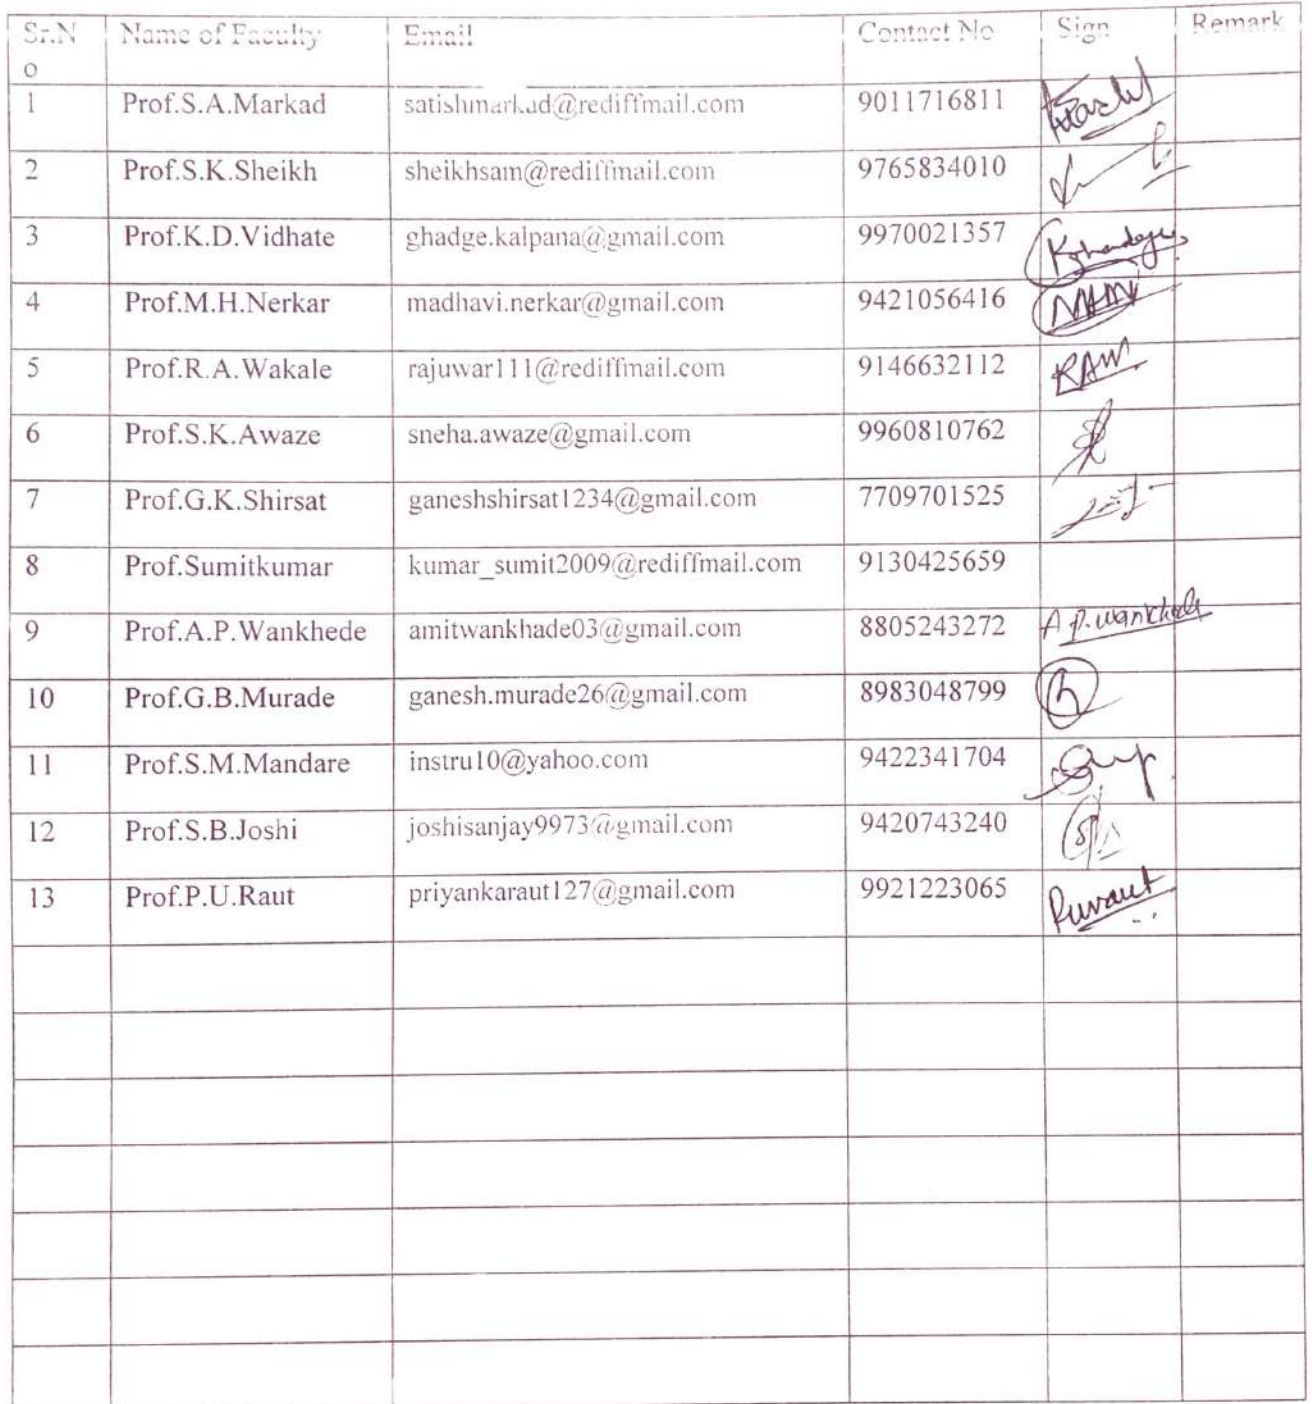 Sr.N Name of Faculty Email Contact No Sign Remark
o
1 Prof.S.A.Markad satishmarkad@rediffmail.com 9011716811
2 Prof.S.K.Sheikh sheikhsam@rediffmail.com 9765834010
3 Prof.K.D.Vidhate ghadge.kalpana@gmail.com 9970021357
4 Prof.M.H.Nerkar madhavi.nerkar@gmail.com 9421056416
5 Prof.R.A.Wakale rajuwar111@rediffmail.com 9146632112 RAW
6 Prof.S.K.Awaze sneha.awaze@gmail.com 9960810762
7 Prof.G.K.Shirsat ganeshshirsat1234@gmail.com 7709701525
8 Prof.Sumitkumar kumar_sumit2009@rediffmail.com 9130425659
9 Prof.A.P.Wankhede amitwankhade03@gmail.com 8805243272 A.P.wankhede
10 Prof.G.B.Murade ganesh.murade26@gmail.com 8983048799
11 Prof.S.M.Mandare instru10@yahoo.com 9422341704
12 Prof.S.B.Joshi joshisanjay9973@gmail.com 9420743240
13 Prof.P.U.Raut priyankaraut127@gmail.com 9921223065 Puraut